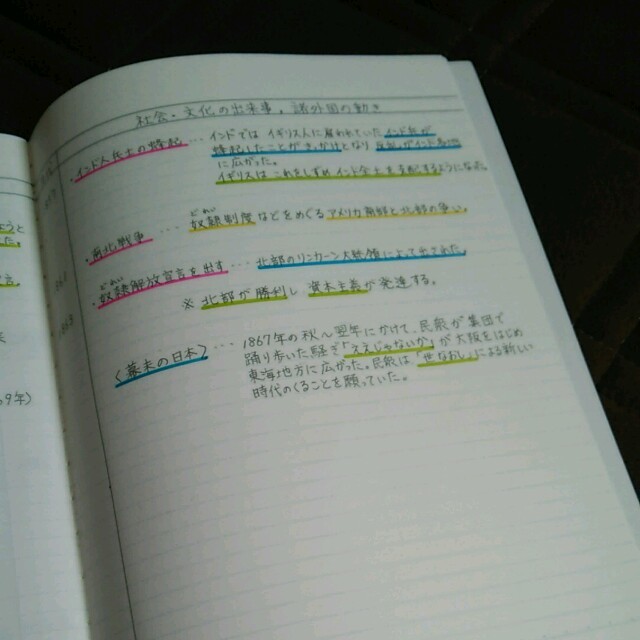 社会・文化の出来事,諸外国の動き
インド人兵士の … インドでは イギリス人に雇われていたインド兵が
となり
に広がった。
イギリスはこれをしずめインド全土を支配するようになる。
南北戦争 … 奴隷制度 などをめぐる アメリカ
どれい
奴隷解放宣言を出す … 北部のリンカーン大統領によって出された
※ 北部が勝利し 資本主義が発達する。
(幕末の日本) … 1867年の秋~翌年にかけて、民衆が集団で
踊り歩いた騒ぎ「ええじゃないか」が大阪をはじめ
東海地方に広がった。民衆は「世なおし」による新しい
時代のくることを願っていた。
9年)